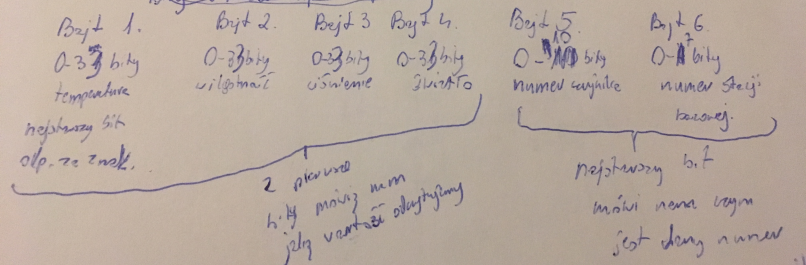 Bajt 1. Bajt 2. Bajt 3 Bajt 4. Bajt 5. Bajt 6.
bity bity bity bity bity bity
temperatura wilgotność ciśnienie światło numer czujnika numer stacji
bazowej.
najstarszy bit
odp. za znak.
2 pierwsze
bity mówią nam
jaką wartość odczytujemy
najstarszy bit
mówi nam czym
jest dany numer